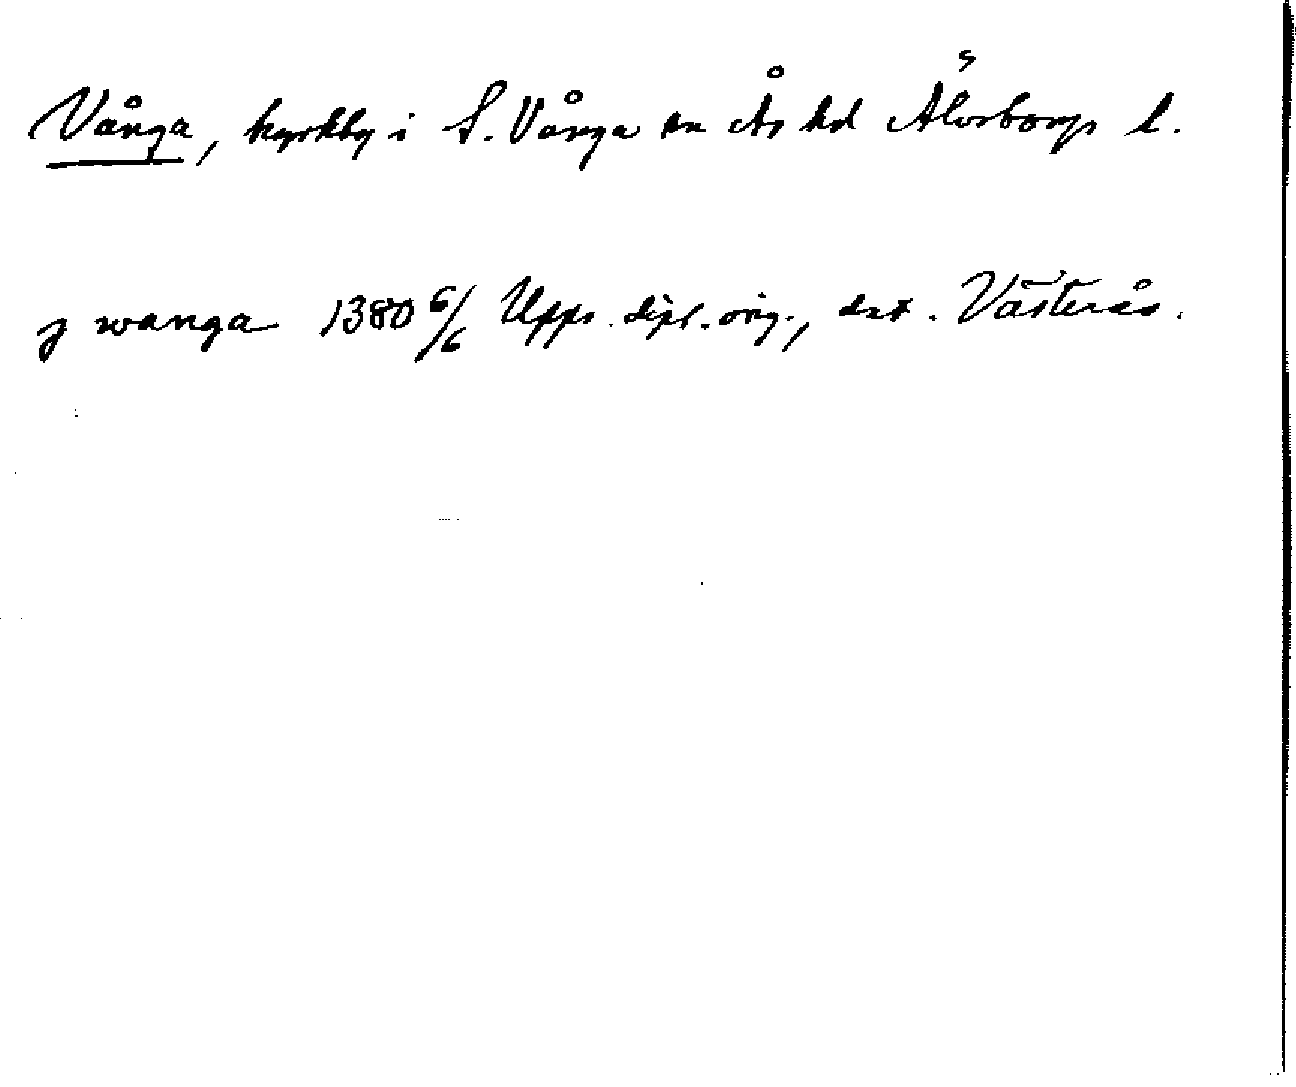 Vånga, kyrkby i S. Vånga sn Ås hd Älvsborgs l.
j wanga 1380 6/6 Upps. dipl. orig., dat. Västerås.